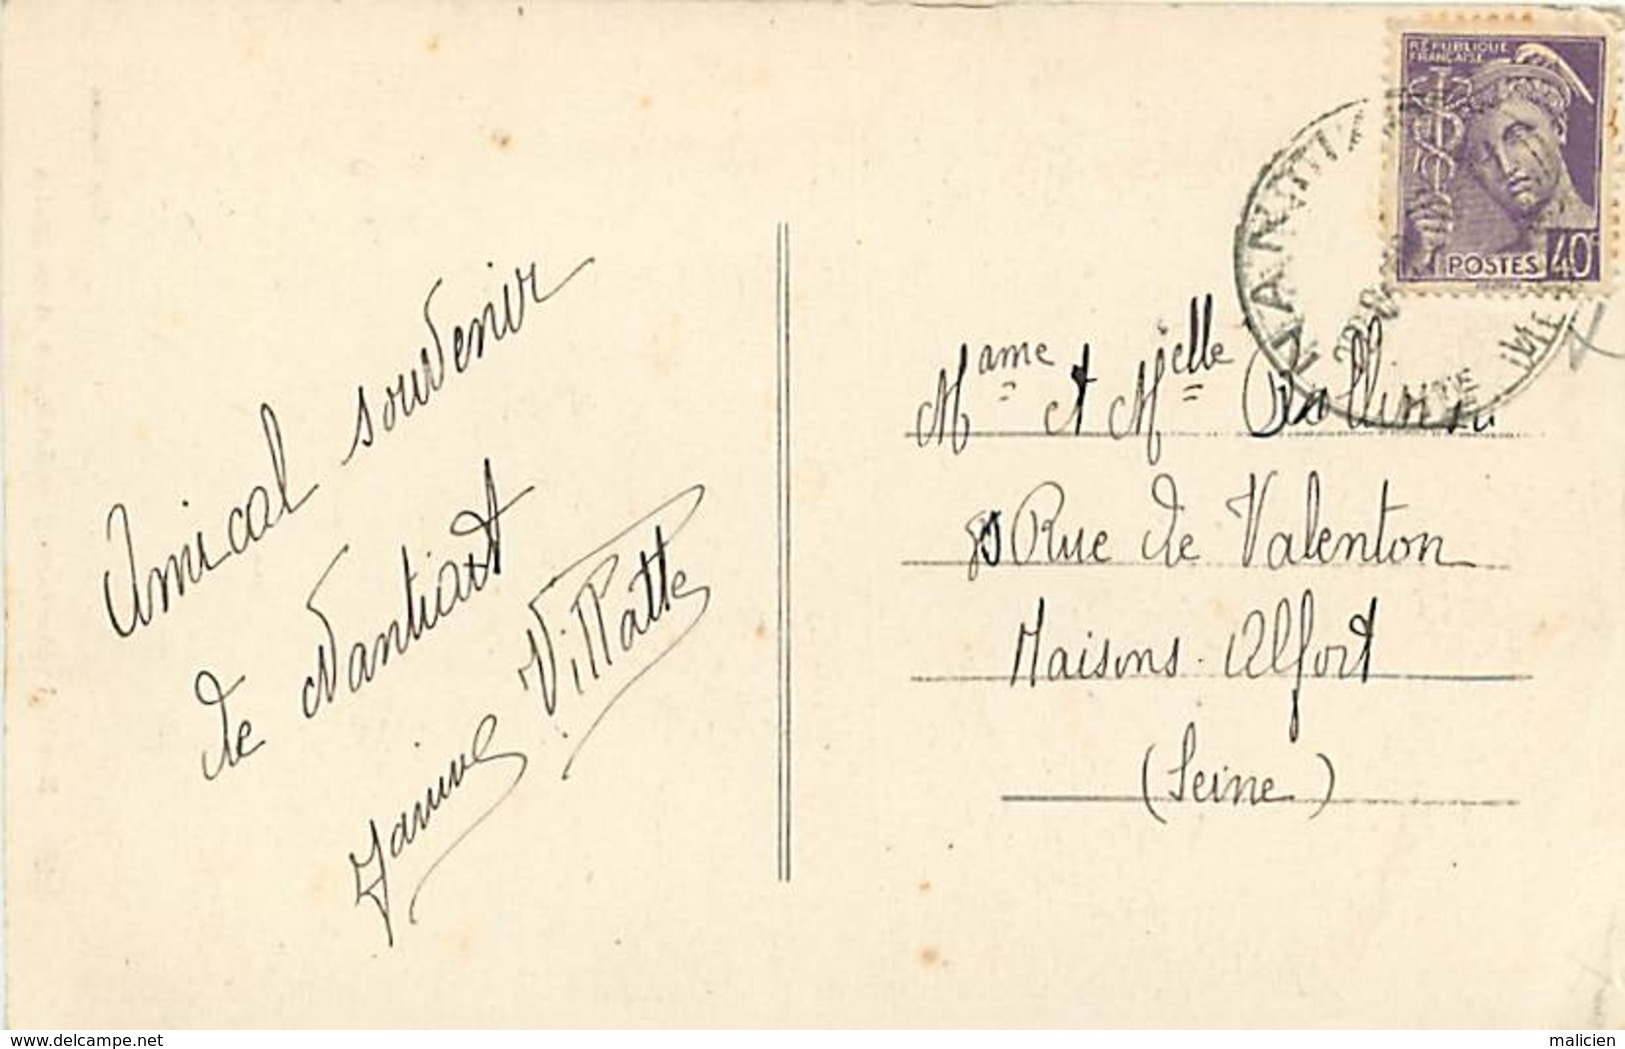 Amical souvenir
de Nantiat
Janine Villatte
RÉPUBLIQUE
FRANÇAISE
POSTES 40c
NANTIAT
VTE
Mame et Mlle
Rue de Valenton
Maisons-Alfort
(Seine)
delcampe.net
malicien